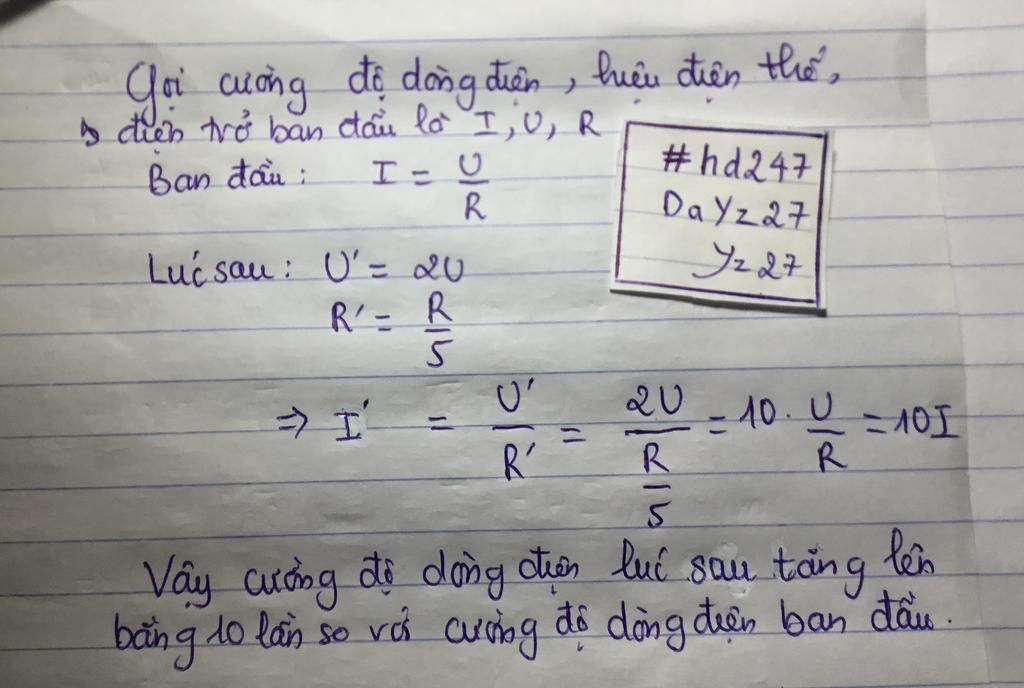 Gọi cường độ dòng điện, hiệu điện thế,
điện trở ban đầu là I, U, R
Ban đầu: I = U/R
#hd247
DaYz27
Yz27
Lúc sau: U' = 2U
R' = R/5
⇒ I' = U'/R' = 2U/(R/5) = 10 . U/R = 10I
Vậy cường độ dòng điện lúc sau tăng lên
bằng 10 lần so với cường độ dòng điện ban đầu.